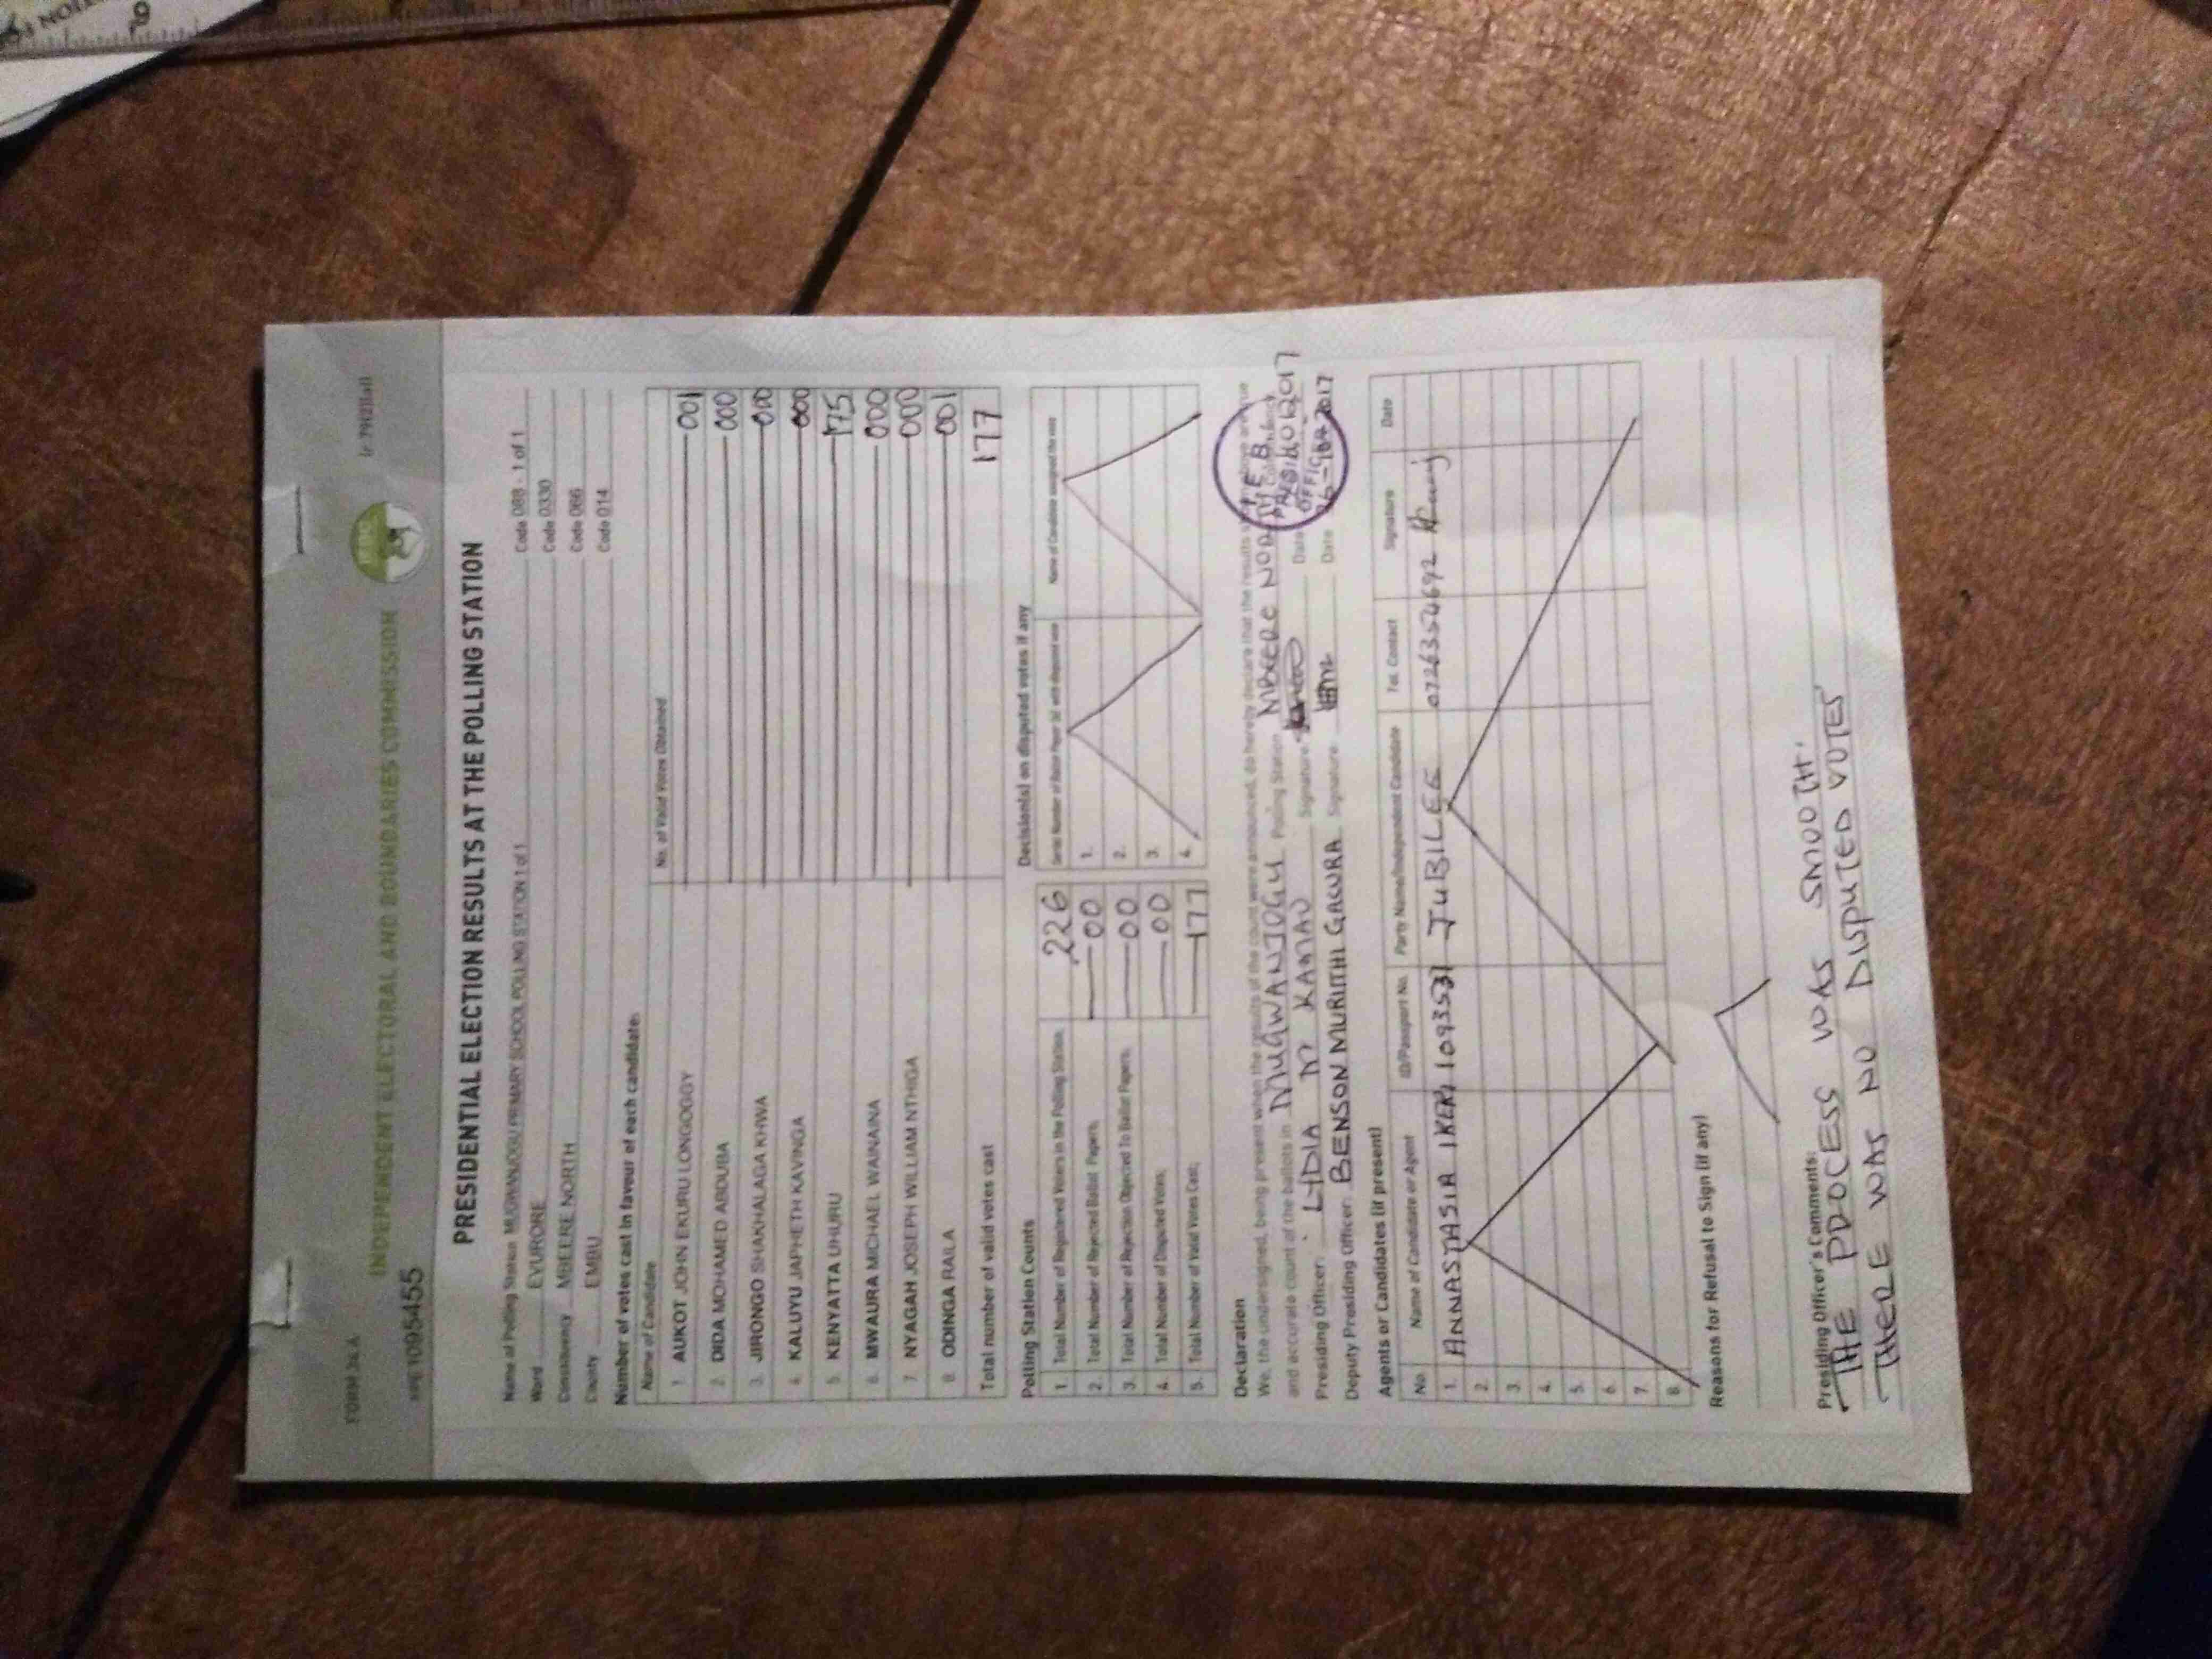 FORM 34 A
INDEPENDENT ELECTORAL AND BOUNDARIES COMMISSION
PRESIDENTIAL ELECTION RESULTS AT THE POLLING STATION
Name of Polling Station MUGWANJOGU PRIMARY SCHOOL POLLING STATION 1 of 1 Code 088 - 1 of 1
Ward EVURORE Code 0330
Constituency MBEERE NORTH Code 066
County EMBU Code 014
Number of votes cast in favour of each candidate:
Name of Candidate No. of Valid Votes Obtained
1. AUKOT JOHN EKURU LONGOGGY 001
2. DIDA MOHAMED ABDUBA 000
3. JIRONGO SHAKHALAGA KHWA 000
4. KALUYU JAPHETH KAVINGA 000
5. KENYATTA UHURU 175
6. MWAURA MICHAEL WAINAINA 000
7. NYAGAH JOSEPH WILLIAM NTHIGA 000
8. ODINGA RAILA 001
Total number of valid votes cast 177
Polling Station Counts
1. Total Number of Registered Voters in the Polling Station 226
2. Total Number of Rejected Ballot Papers 00
3. Total Number of Rejection Objected To Ballot Papers 00
4. Total Number of Disputed Votes 00
5. Total Number of Valid Votes Cast 177
Decision(s) on disputed votes if any
Serial Number of Ballot Paper (s) with disputed vote Name of Candidate assigned the vote
1.
2.
3.
4.
Declaration
We, the undersigned, being present when the results of the count were announced, do hereby declare that the results above are true
and accurate count of the ballots in MUGWANJOGU Polling Station MBEERE NORTH
Presiding Officer: LYDIA M KAMAU Signature: Date
Deputy Presiding Officer: BENSON MURIITHI GACURA Signature: Date 2017
Agents or Candidates (if present)
No. Name of Candidate or Agent ID/Passport No. Party Name/Independent Candidate Tel. Contact Signature Date
1. ANNASTASIA IKERI 1093531 JUBILEE 0726354692
2.
3.
4.
5.
6.
7.
8.
Reasons for Refusal to Sign (if any)
Presiding Officer's Comments:
THE PROCESS WAS SMOOTH.
THERE WAS NO DISPUTED VOTES